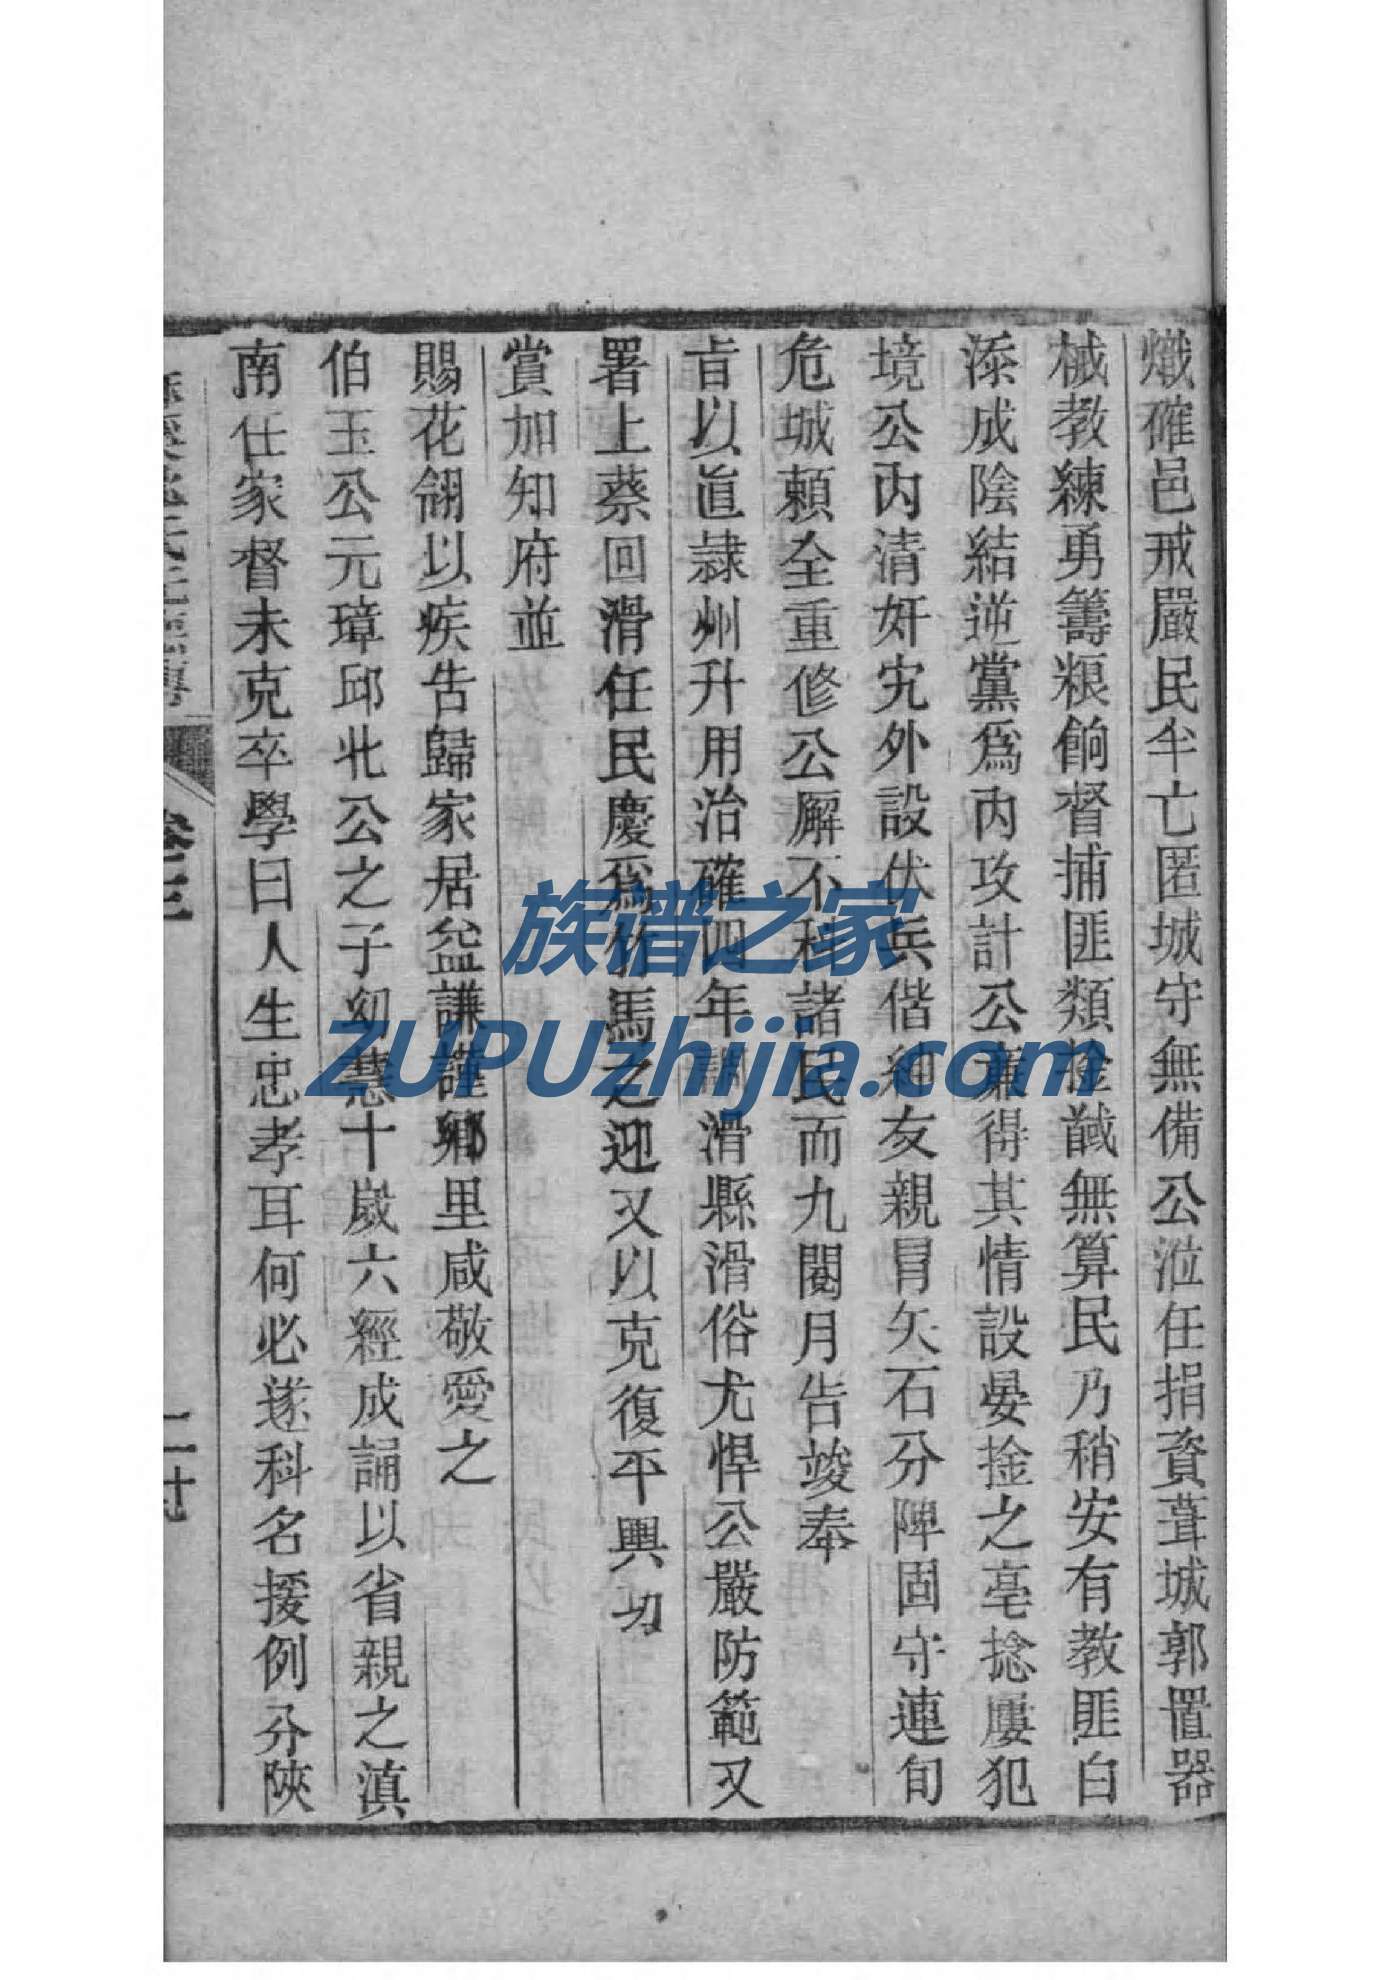 熾確邑戒嚴民半亡匿城守無備公涖任捐資葺城郭置器
械教練勇籌粮餉督捕匪類捡馘無算民乃稍安有教匪白
添成陰結逆黨爲內攻計公廉得其情設晏捡之亳捻屢犯
境公內清奸宄外設伏兵偕利友親冒矢石分陴固守連旬
危城頼全重修公廨不科諸民而九閱月告竣奉
旨以直隸州升用治確四年調滑縣滑俗尤悍公嚴防範又
署上蔡回滑任民慶爲竹馬之迎又以克復平興切
賞加知府並
賜花翎以疾告歸家居益謙謹鄉里咸敬愛之
伯玉公元璋邱北公之子幼慧十歲六經成誦以省親之滇
南任家督未克卒學曰人生忠孝耳何必遂科名援例分陝
卷三
族谱之家
ZUPUzhijia.com